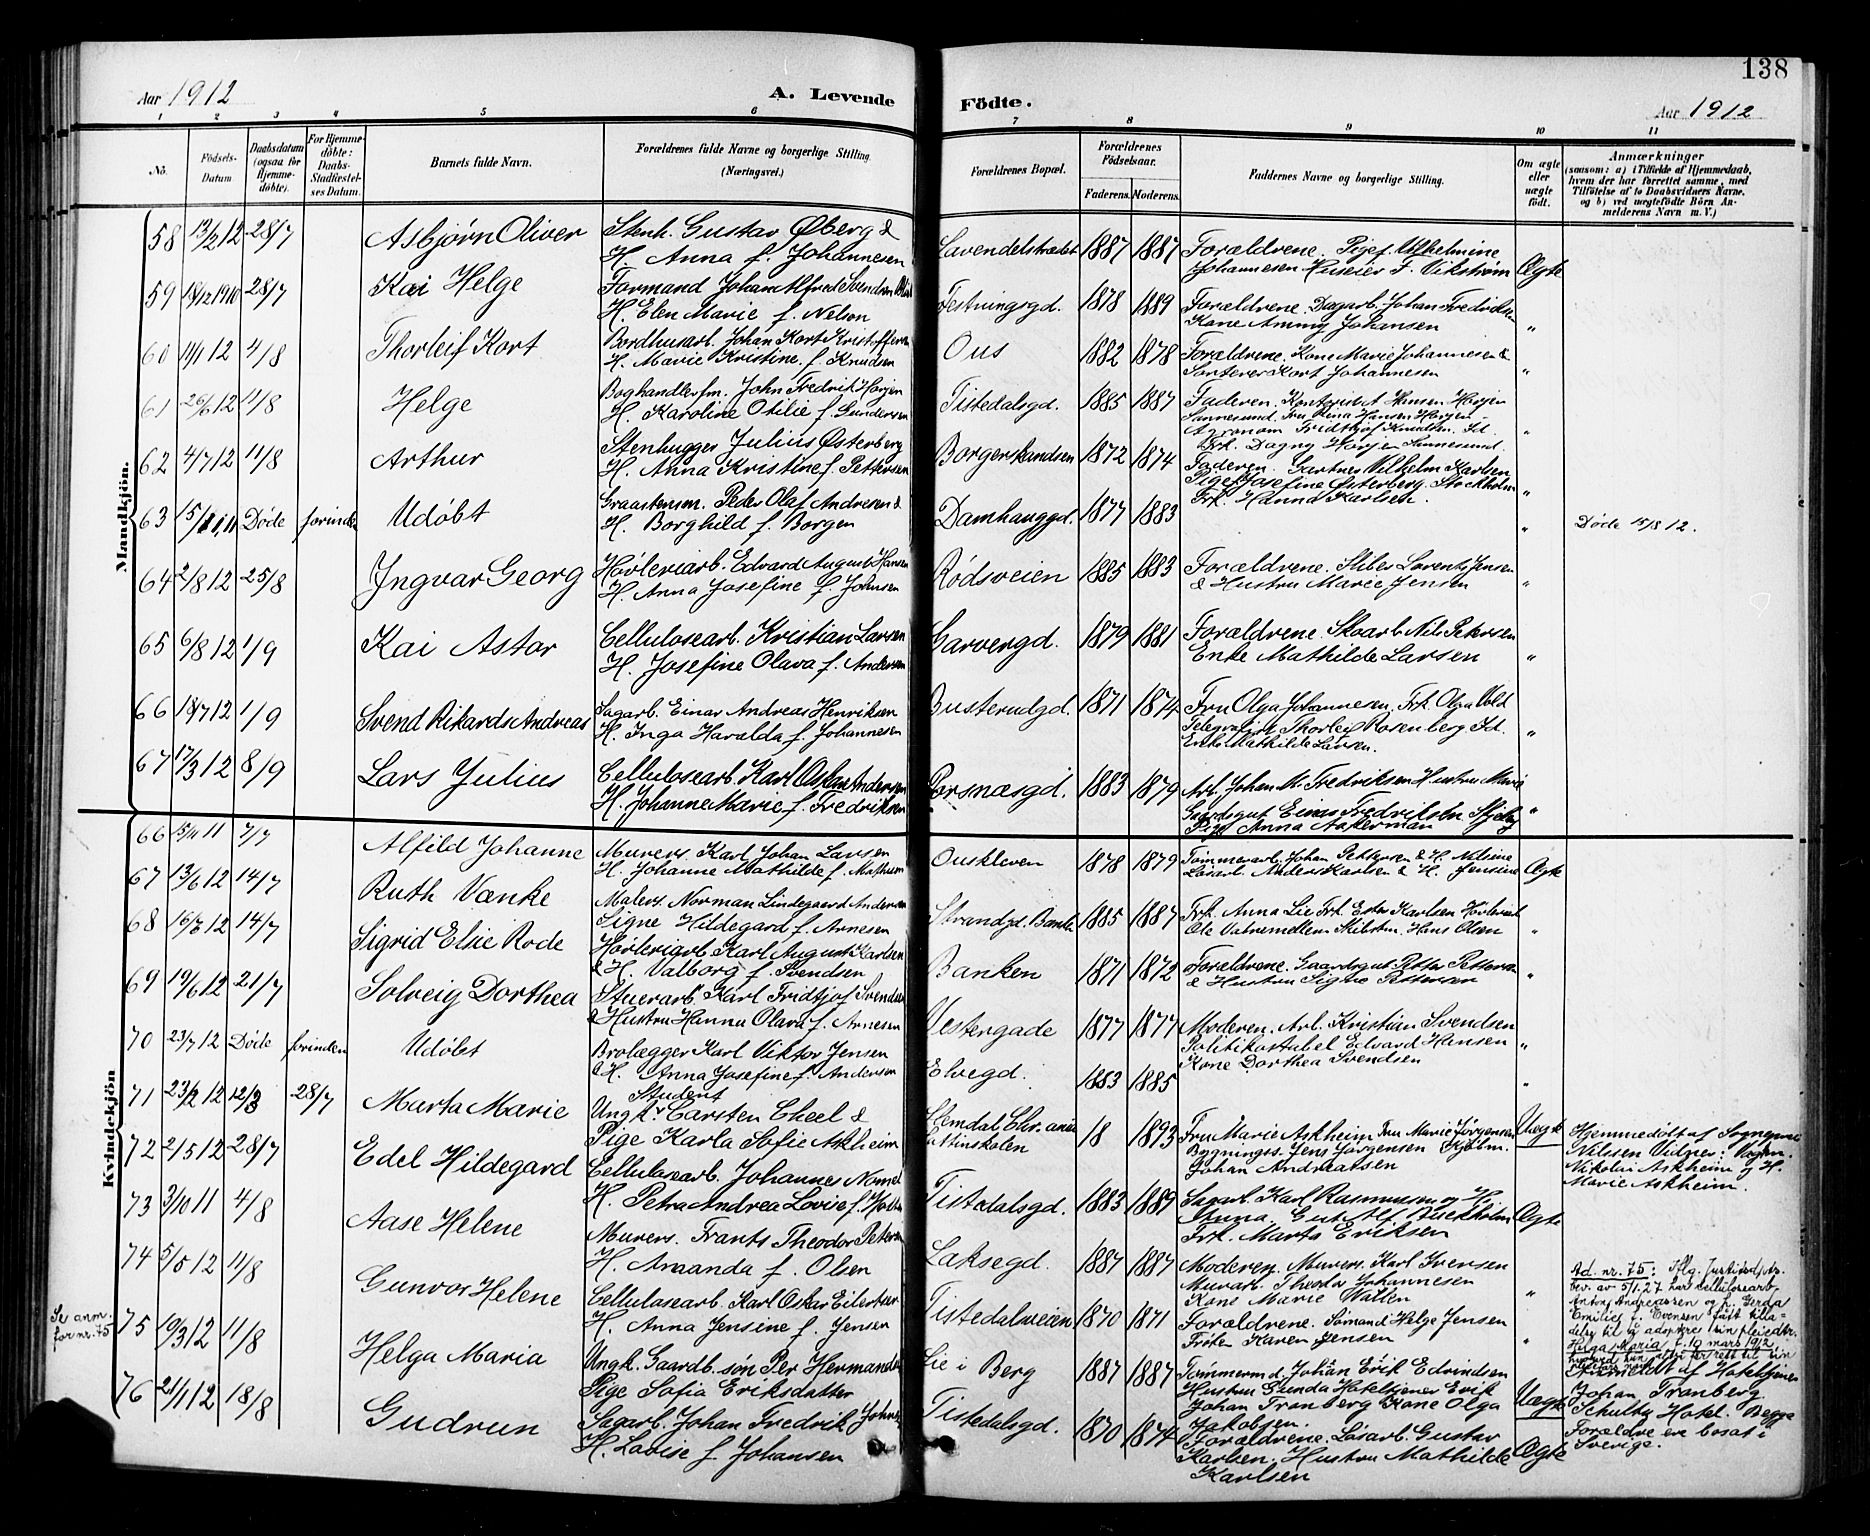 138
Aar 1912
A. Levende Födte.
Aar 1912
1 2 3 4 5 6 7 8 9 10 11
No.
Födsels-Datum.
Daabsdatum (ogsaa for Hjemme-döbte).
For Hjemme-döbte: Daabs-Stadfæstel-ses Datum.
Barnets fulde Navn.
Forældrenes fulde Navne og borgerlige Stilling. (Næringsvei.)
Forældrenes Bopæl.
Forældrenes Födselsaar.
Faderens. Moderens.
Faddernes Navne og borgerlige Stilling.
Om ægte eller uægte födt.
Anmærkninger
(saasom: a) i Tilfælde af Hjemmedaab, hvem der har forrettet samme, med Tilföielse af to Daabsvidners Navne. og b) ved uægtefödte Börn An-melderens Navn m. V.)
Mandkjön.
58 13/2 12 28/7 Asbjørn Oliver Stenh. Gustav Øberg &
H. Anna f. Johannesen
Lavendelstrædet 1887 1887 Forældrene. Pige Vilhelmine
Johannesen Huseier J. Vikstrøm Ægte
59 18/12 1910 28/7 Kai Helge Formand Johan Alfred Svendsen
H. Elen Marie f. Nelson
Festningsgd. 1878 1889 Forældrene. Dagarb. Johan Fredriksen
Kone Ammy Johansen "
60 14/1 12 4/8 Thorleif Kort Bordhusarb. Johan Kort Kristoffersen
H. Marie Kristine f. Knudsen
Ous 1882 1878 Forældrene. Kone Marie Johannesen &
Sorterer Kort Johannesen "
61 26/6 12 11/8 Helge Boghandlerfm. John Fredrik Horjen
H. Karoline Otilie f. Gundersen
Tistedalsgd. 1885 1887 Faderen. Kontorist A. Hansen Horjen
Sannesund. Fru Rina Hansen Horjen
Agronom Fridthjof Knudsen. Id.
Frk. Dagny Horjen Sannesund. "
62 4/7 12 11/8 Arthur Stenhugger Julius Østerberg
H. Anna Kristine f. Pettersen
Borgerskandsen 1872 1874 Faderen. Gartner Vilhelm Karlsen
Pige Josefine Østerberg. Stockholm
Frk. Hanna Karlsen. "
63 15/11 11 Døde forinden Udøbt Graastensm. Peder Olaf Andresen &
H. Borghild f. Borgen
Damhauggd. 1877 1883 " Døde 15/8 12.
64 2/8 12 25/8 Ingvar Georg Høvleriarb. Edvard August Hansen
H. Anna Josefine f. Johnsen
Rødsveien 1885 1883 Forældrene. Sliber Lorentz Jensen
& Hustru Marie Jensen "
65 6/8 12 1/9 Kai Astor Cellulosearb. Kristian Larsen
H. Josefine Olava f. Andersen
Garvergd. 1879 1881 Forældrene. Skoarb. Nils Petersen
Enke Mathilde Larsen "
66 18/7 12 1/9 Svend Rikard Andreas Sagarb. Einar Andreas Henriksen
H. Inga Haralda f. Johannesen
Busterudgd. 1871 1874 Fru Olga Johannesen. Frk. Olga Vold
Telegrafist Thorleif Rosenberg Id.
Enke Mathilde Larsen. "
67 17/3 12 8/9 Lars Julius Cellulosearb. Karl Oskar Andersen
H. Johanne Marie f. Fredriksen
Porsnæsgd. 1883 1879 Arb. Johan M. Fredriksen Hustru Marie
Gaardsgut Einar Fredriksen
Pige Anna Aakerman "
Kvindekjön
66 15/11 11 7/7 Alfild Johanne Murers. Karl Johan Larsen
H. Johanne Mathilde f.
Ouskleven 1878 1879 Tømmerarb. Johan Pettersen & H. Nilsine
Løsarb. Anders Karlsen & H. Jensine Ægte
67 13/6 12 14/7 Ruth Vænke Malers. Norman Lindegaard Andersen
Signe Hildegard f. Arnesen
Strandgd. Banken 1885 1887 Frk. Anna Lie Frk. Ester Karlsen Høvleriarb.
Ole Hans Olsen "
68 16/2 12 14/7 Sigrid Elsie Rode Høvleriarb. Karl August Karlsen
& H. Valborg f. Svendsen
Banken 1871 1872 Forældrene. Gaardsgut Petter Pettersen
& Hustru Signe Pettersen "
69 19/6 12 21/7 Solveig Dorthea Stuerarb. Karl Fridtjof Svendsen
& Hustru Hanna Olava f. Arnesen
Vestergade 1877 1877 Moderen. Arb. Kristian Svendsen
Politikonstabel Edvard Hansen
Kone Dorthea Svendsen "
70 23/7 12 Døde forinden Udøbt Brolægger Karl Viktor Jensen
& H. Anna Josefine f. Andersen
Elvegd. 1883 1885 "
71 23/2 12 12/3 28/7 Marta Marie Student
Ungk. Carsten Cheel &
Pige Karla Sofie Askheim
Slemdal Chr.ania
Latinskolen 18 1893 Fru Marie Askheim Fru Marie Jørgensen
Bygningss. Jens Jørgensen
Johan Andreassen Uægte
Hjemmedøbt af Sognepr.
Nilssen Vidner: Vognm.
Nikolai Askheim og H.
Marie Askheim.
72 2/5 12 28/7 Edel Hildegard Cellulosearb. Johannes Nomel
H. Petra Andrea Lovise f. Holtn
Tistedalsgd. 1883 1889 Sagarb. Karl Rasmussen og H.
Anna. Gut Alf Buckholm
Frk. Marta Eriksen Ægte
73 3/10 11 4/8 Aase Helene Murers. Frants Theodor Petersen
H. Amanda f. Olsen
Laksegd. 1887 1887 Moderen. Murers. Karl Iversen
Murarb. Theodor Johannesen
Kone Marie Wallen "
74 5/5 12 11/8 Gunvor Helene Cellulosearb. Karl Oskar Eilertsen
H. Anna Jensine f. Jensen
Tistedalsveien 1870 1871 Forældrene. Sømand Helge Jensen
Frøken Karen Jensen "
Se anm.
for nr. 75
75 10/3 12 11/8 Helga Maria Ungk. Gaardb. søn Per Hermandsen
Pige Sofia Eriksdatter
Lie i Berg 1887 1887 Tømmermd. Johan Erik Edvindsen
Hustru Gunda Hoteltjener Erik
Johan Tranberg Kone Olga
Jakobsen. Uægte
Ad. nr. 75: Iflg. Justisdepts.
bev. av 5/1.27 har cellulosearb.
Anton Andreassen og h. Gerda
Emilie f. Evensen fått tilla-
delse til å adoptere sin pleiedtr.
Helga Maria f. 10 mars 1912,
Anmeldt af Hoteltjener
Johan Tranberg
Schultz Hotel. Begge
Forældre ere bosat i
Sverige.
76 21/1 12 18/8 Gudrun Sagarb. Johan Fredrik Johnsen
H. Lovise f. Johansen
Tistedalsgd. 1870 1874 Forældrene. Løsarb. Gustav
Karlsen. Hustru Mathilde
Karlsen Ægte